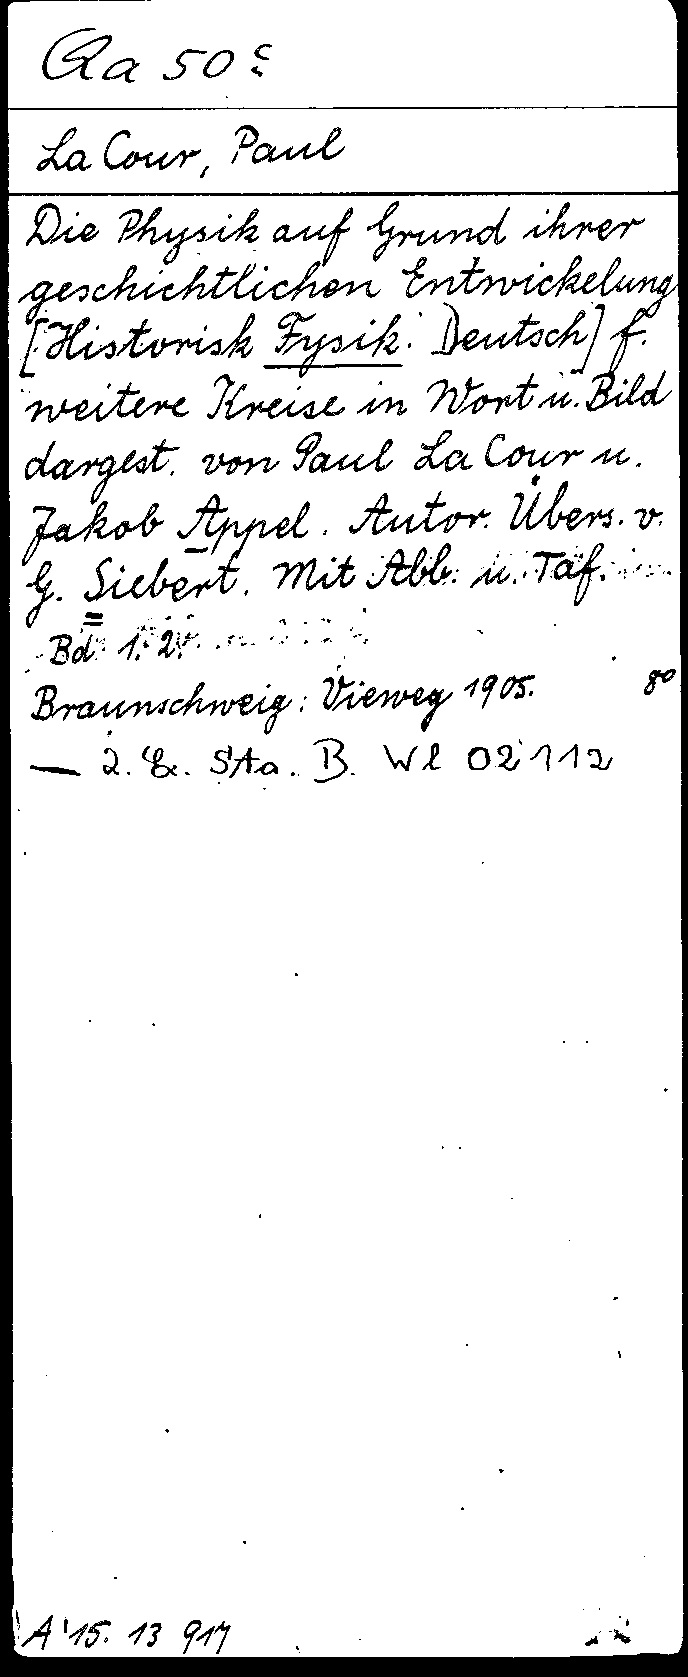 Qa 50 c
La Cour, Paul
Die Physik auf Grund ihrer
geschichtlichen Entwickelung
[Historisk Fysik. Deutsch] f.
weitere Kreise in Wort u. Bild
dargest. von Paul La Cour u.
Jakob Appel. Autor. Übers. v.
G. Siebert. Mit Abb. u. Taf.
Bd. 1. 2.
Braunschweig: Vieweg 1905. 8º
— 2. Ex. Sta. B. Wl 02 112
A '15. 13 917